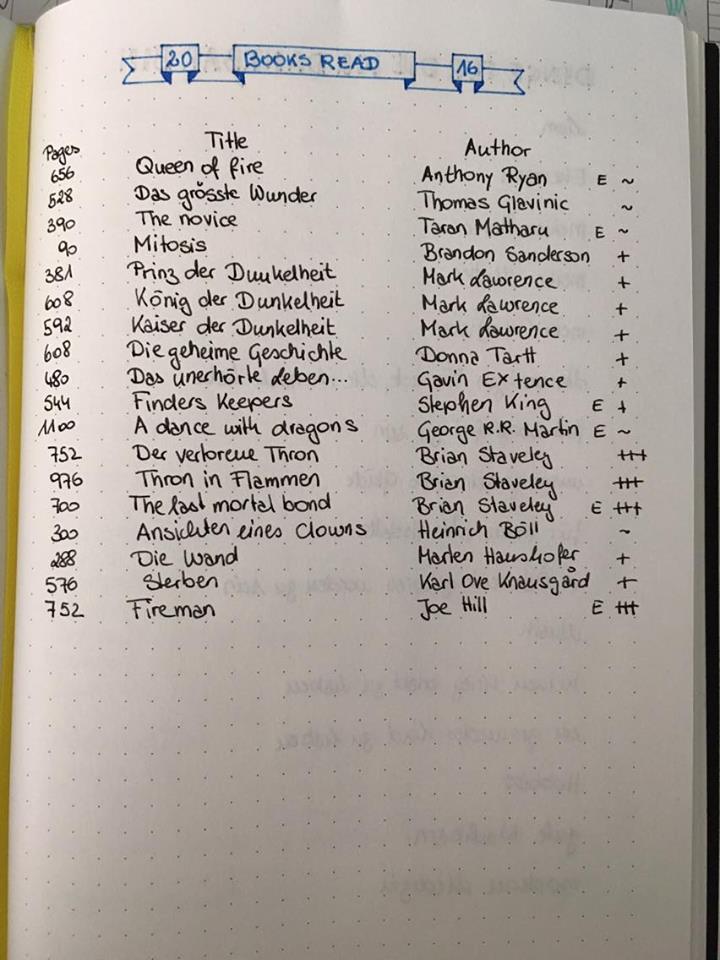 20 BOOKS READ 16
Pages Title Author
656 Queen of fire Anthony Ryan E ~
528 Das grösste Wunder Thomas Glavinic ~
390 The novice Taran Matharu E ~
90 Mitosis Brandon Sanderson +
381 Prinz der Dunkelheit Mark Lawrence +
608 König der Dunkelheit Mark Lawrence +
592 Kaiser der Dunkelheit Mark Lawrence +
608 Die geheime Geschichte Donna Tartt +
480 Das unerhörte Leben... Gavin Extence +
544 Finders Keepers Stephen King E +
1100 A dance with dragons George R.R. Martin E ~
752 Der verlorene Thron Brian Staveley +++
976 Thron in Flammen Brian Staveley +++
700 The last mortal bond Brian Staveley E +++
300 Ansichten eines Clowns Heinrich Böll ~
288 Die Wand Marlen Haushofer +
576 Sterben Karl Ove Knausgård +
752 Fireman Joe Hill E +++